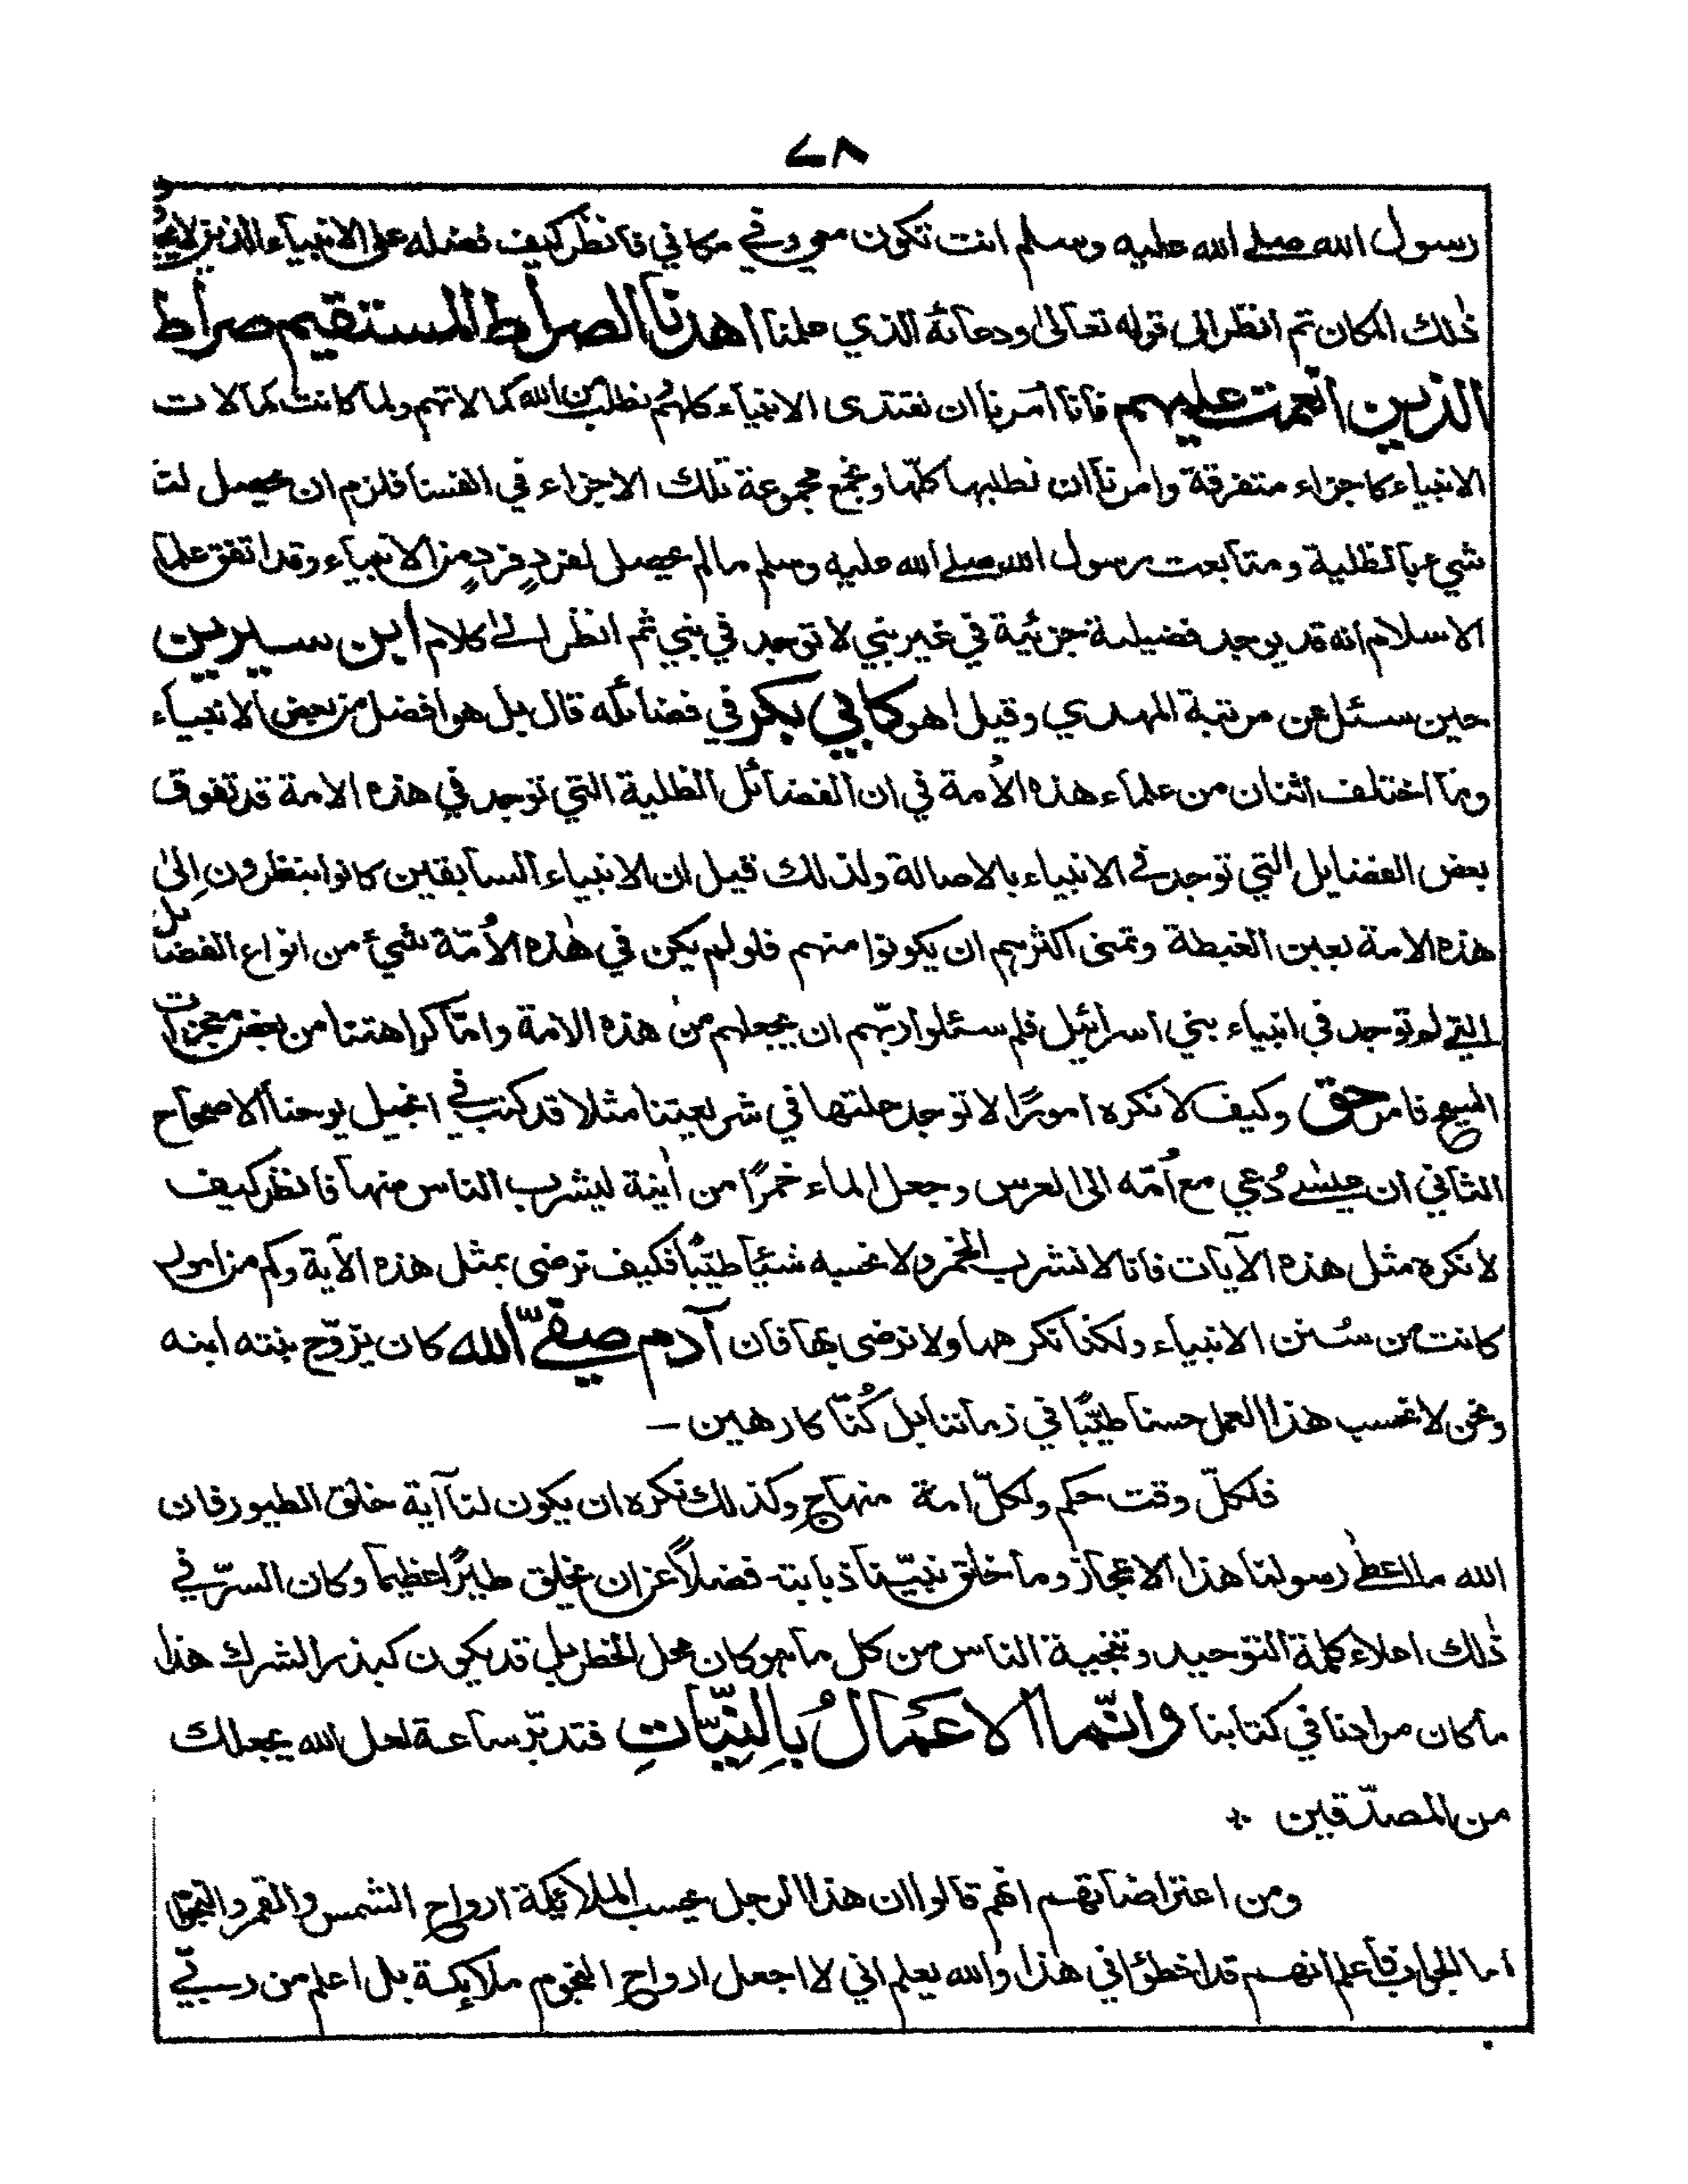 ٧٨
رسول الله صلے الله عليه وسلم انت تكون معي وفي مكاني فانظر كيف فضله على الانبياء الذين لا
ذٰلك المكان ثم انظر الى قوله تعالىٰ ودعائه الذي علمنا اهدنا الصراط المستقيم صراط
الذين انعمت عليهم فانا اُمرنا ان نقتدى الانبياء كلهم ونطلب من الله كمالاتهم ولما كانت كمالات
الانبياء كاجزاء متفرقة وامرنا ان نطلبها كلّها ونجمع مجموعة تلك الاجزاء في انفسنا فلزم ان يحصل لنا
شيء بالظلية ومتابعت رسول الله صلے الله عليه وسلم ما لم يحصل لفردٍ فردٍ من الانبياء وقد اتفق علماء
الاسلام انه قد يوجد فضيلة جزئية في غير نبي لا توجد في نبي ثم انظر الىٰ كلام ابن سيرين
حين سئل عن مرتبة المهدي وقيل اهو كابي بكر في فضائله قال بل هو افضل من بعض الانبياء
وما اختلف اثنان من علماء هذه الاُمة في ان الفضائل الظلية التي توجد في هذه الامة قد تفوق
بعض الفضايل التي توجد في الانبياء بالاصالة ولذلك قيل ان الانبياء السابقين كانوا ينظرون اِلىٰ
هذه الامة بعين الغبطة وتمنى اكثرهم ان يكونوا منهم فلو لم يكن في هٰذه الاُمّة شيئ من انواع الفضايل
التي لم توجد في انبياء بني اسرائيل فلم سئلوا ربّهم ان يجعلهم من هذه الامة وامّا كراهتنا من بعض معجزات
المسيح فامر حق وكيف لا نكره امورًا لا توجد حلتها في شريعتنا مثلا قد كتب في انجيل يوحنا الاصحاح
الثاني ان عيسٰے دُعي مع اُمّه الى العرس وجعل الماء خمرًا من اٰنية ليشرب الناس منها فانظر كيف
لا نكره مثل هذه الآيات فانا لا نشرب الخمر ولا نحسبه شيئًا طيّبًا فكيف نرضى بمثل هذه الآية وكم من امور
كانت من سُنن الانبياء ولكنا نكرهها ولا نرضى بها فان آدم صفيّ الله كان يزوّج بنته ابنه
ونحن لا نحسب هذا العمل حسنا طيّبًا في زماننا بل كُنّا كارهين -
فلكلّ وقت حكم ولكلّ امة منهاج وكذلك نكره ان يكون لنا آية خلق الطيور فان
الله ما اعطٰے رسولنا هذا الاعجاز وما خلق نبيّنا ذبابة فضلاً عن ان يخلق طيرًا عظيما وكان السرّ في
ذٰلك اعلاء كلمة التوحيد وتنجية الناس من كل ما هو كان محل الخطر بل قد يكون كبذر الشرك هذا
ما كان مرادنا في كتابنا وانّما الاعمالُ بِالنّيّاتِ فتدبّر ساعة لعل الله يجعلك
من المصدّقين *
ومن اعتراضاتهم انهم قالوا ان هذا الرجل يحسب الملائكة ارواح الشمس والقمر والنجوم
اما الجواب فاعلم انهم قد اخطئوا في هٰذا والله يعلم اني لا اجعل ارواح النجوم ملائكة بل اعلم من ربّي